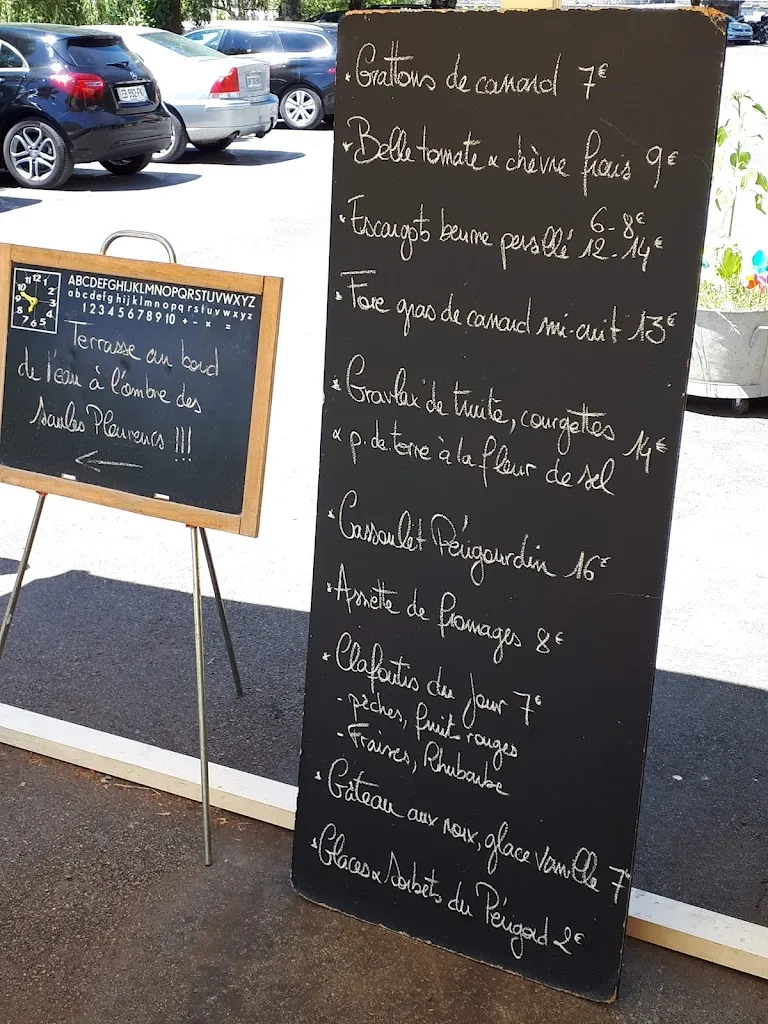 12 1 2 3 4 5 6 7 8 9 10 11
ABCDEFGHIJKLMNOPQRSTUVWXYZ
abcdefghijklmnopqrstuvwxyz
12345678910 + - × =
Terrasse au bord
de l'eau à l'ombre des
saules Pleureurs !!!
Grattons de canard 7€
Belle tomate & chèvre frais 9€
Escargots beurre persillé 6-8€ 12-14€
Foie gras de canard mi-cuit 13€
Gravlax de truite, courgettes 14€
& p. de terre à la fleur de sel
Cassoulet Périgourdin 16€
Assiette de fromages 8€
Clafoutis du Jour 7€
- pêches, fruit rouges
- Fraises, Rhubarbe
Gâteau aux noix, glace Vanille 7€
Glaces & Sorbets du Périgord 2€